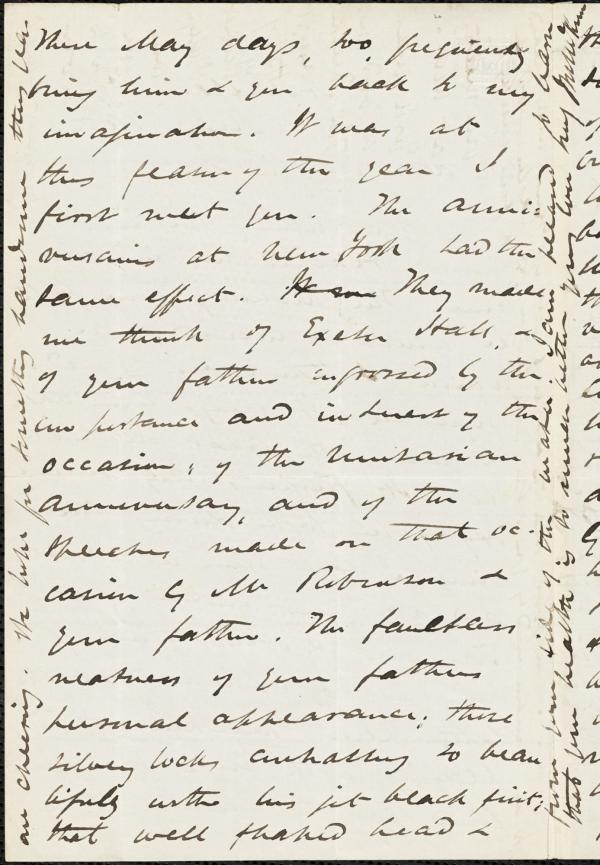 These May days, too, frequently
bring him & you back to my
imagination. It was at
this season of the year I
first meet you. The anni-
versaries at New York had the
same effect. It was They made
me think of Exeter Hall, &
of your father engrossed by the
importance and interest of the
occasion, of the Unitarian
anniversary, and of the
speeches made on that oc-
casion by Mr Robinson &
your father. The faultless
neatness of your fathers
personal appearance; those
silvery locks contrasting so beau
tifully with his jet black suit;
that well shaped head &
are cheering. We hope for something handsome this year
from your side of the water. I am pleased to learn
that your health is so much better